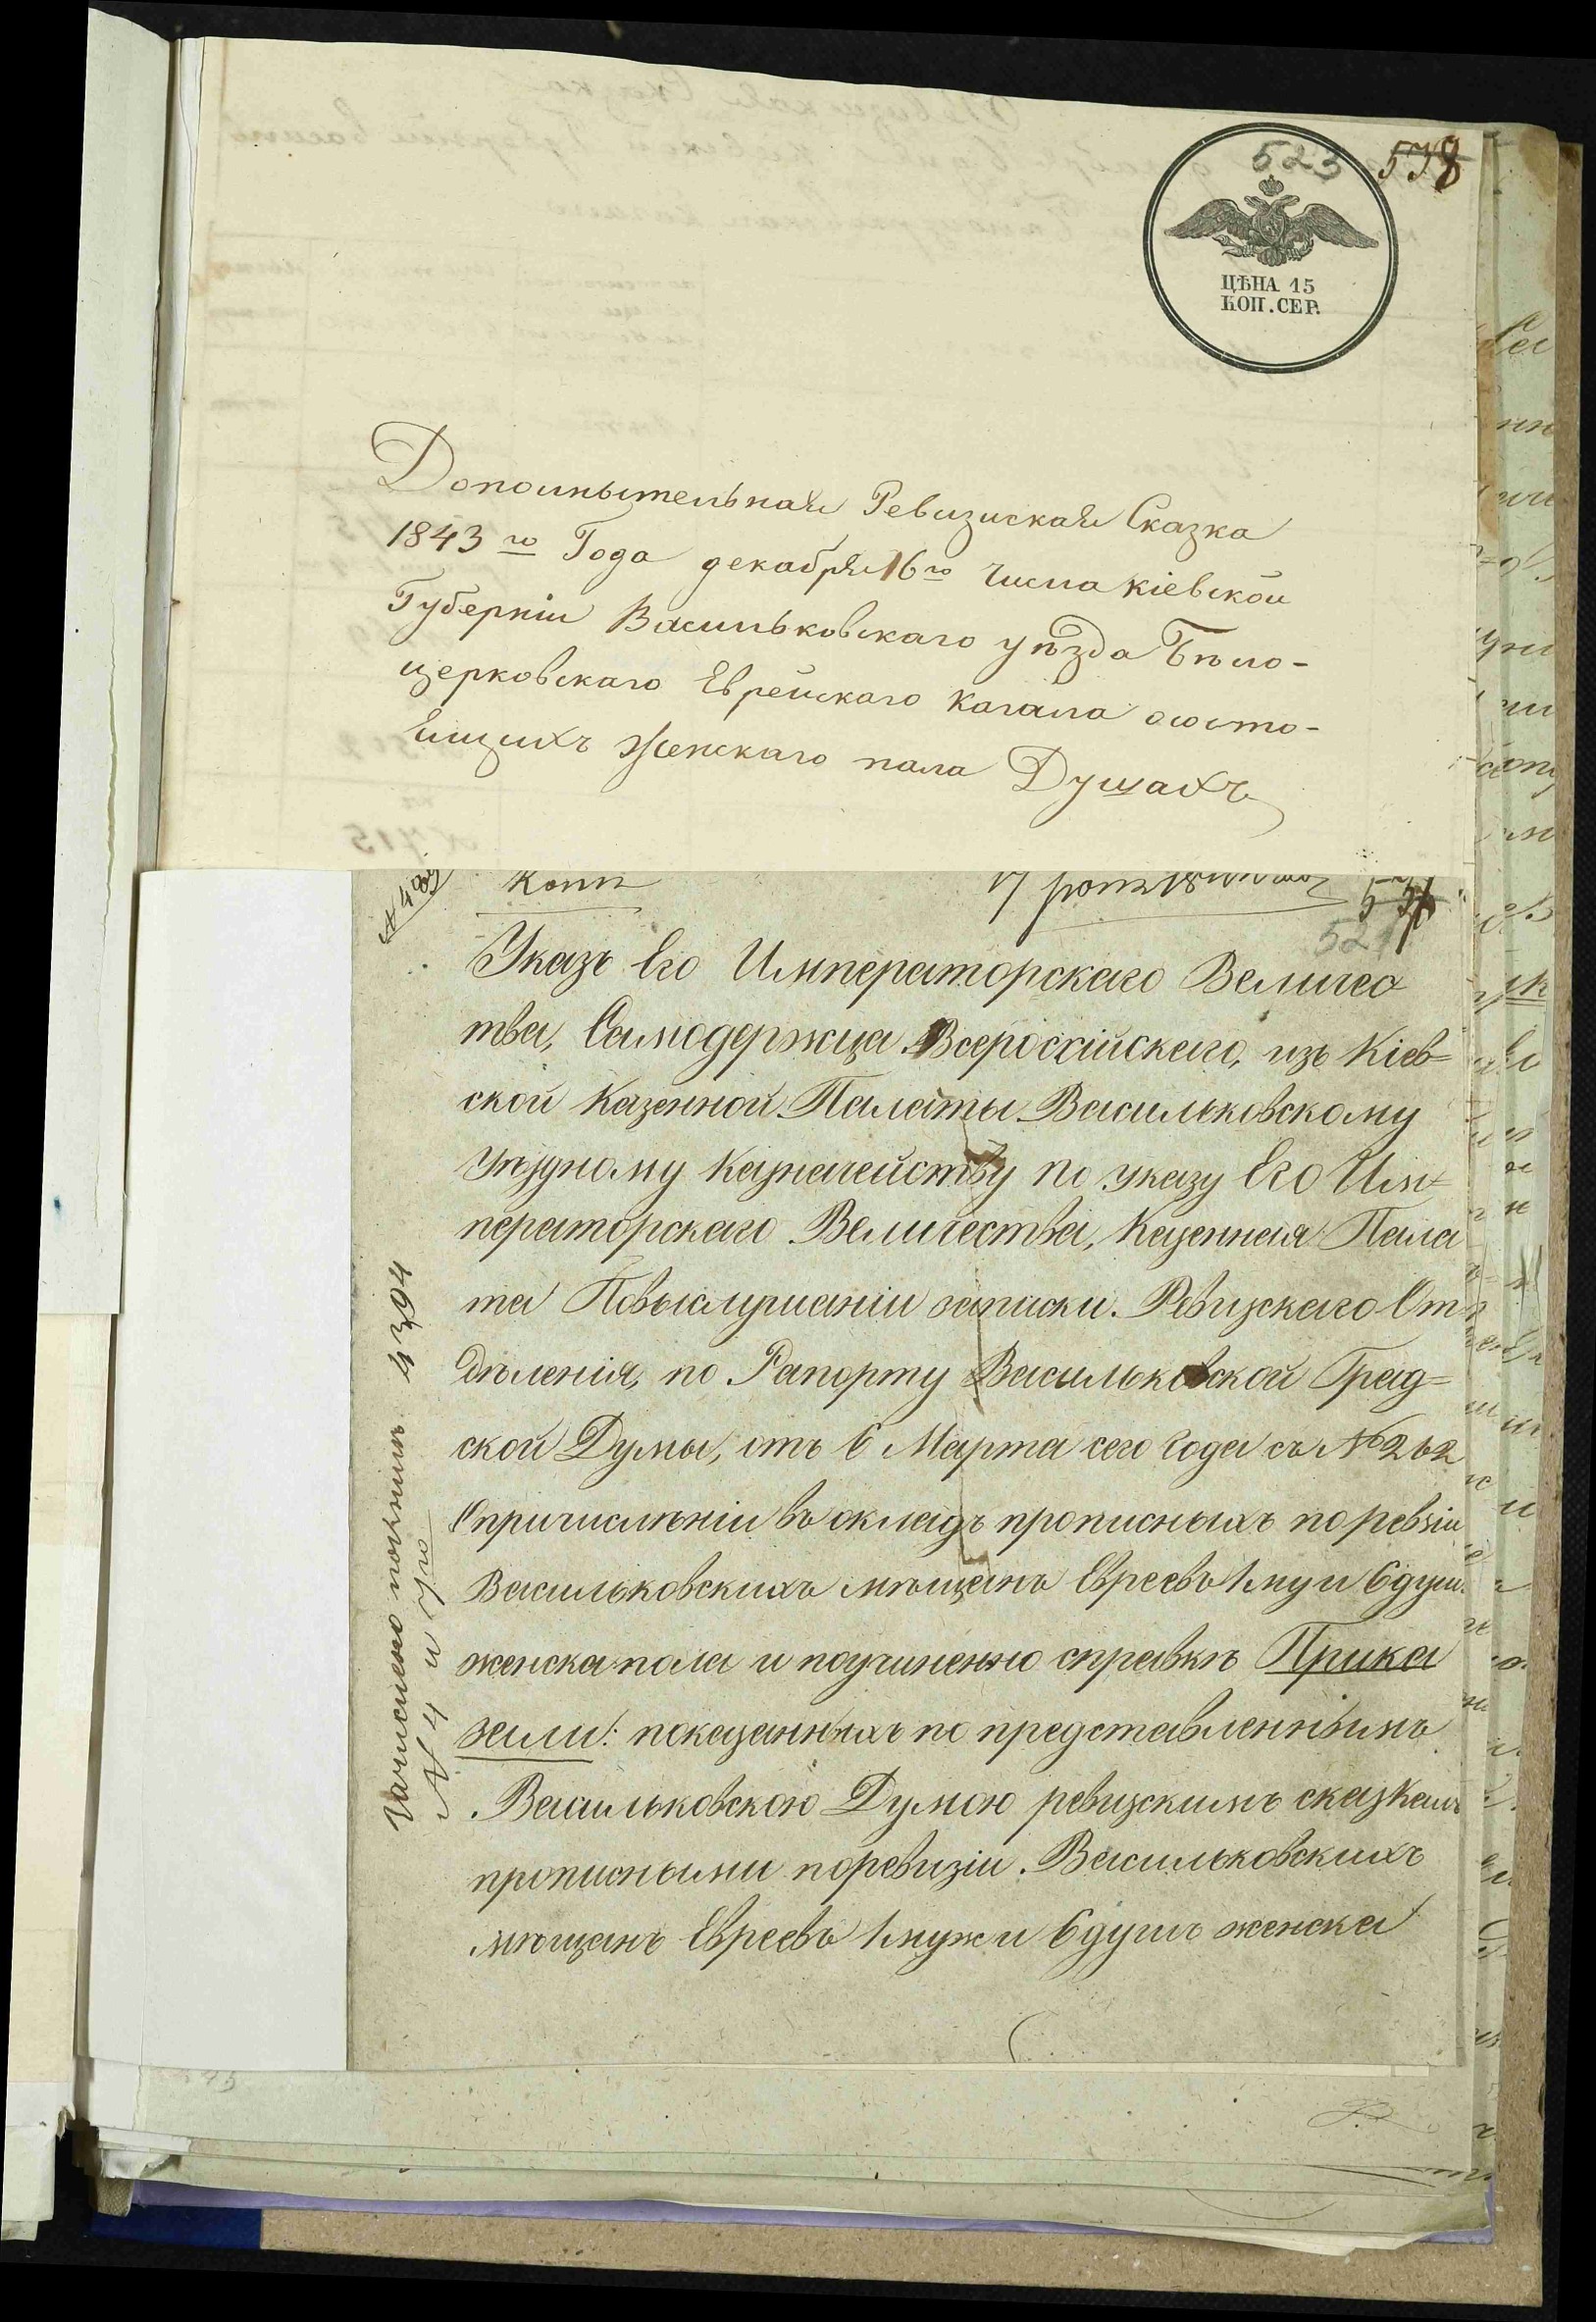 523 538
ЦѢНА 15
КОП. СЕР.
Дополнытельная Ревизиская Сказка
1843го Года декабря 16го числа кіевской
Губерніи Васильковскаго уѣзда Бѣло-
церковскаго Еврейскаго Кагала состо-
ящихъ женскаго пала Душахъ
Копи
Указъ Его Императорскаго Величес
тва, Самодержца Всероссійскаго, изъ Кіев=
ской Казенной Палаты Васильковскому
Уѣздному Казначейству по указу Его Им=
ператорскаго Величества, Казенная Пала
та Повыслушаніи записки. Ревизскаго От
дѣленія, по Рапорту Васильковской Град=
ской Думы, отъ 6 Марта сего Года съ № 262
Опричисленіи въ окладъ прописныхъ поревзіи
Васильковскихъ мѣщанъ Евреевъ 1 му и 6 душ.
женска пола и поучиненно справкѣ Прика
зали: показанныхъ по представленнымъ
Васильковскою Думою ревизскимъ сказкамъ
прописными поревизіи. Васильковскихъ
мѣщанъ Евреевъ 1 муж и 6 душъ женска
4394
№ 4 и 7го